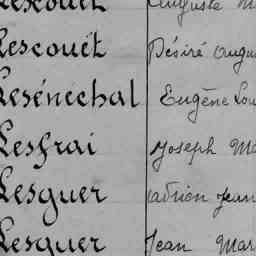 Lescouët Auguste M
Lescouët Désiré Augu
Lesénéchal Eugène Lou
Lesfrai Joseph Ma
Lesguer Adrien Jean
Lesguer Jean Mar